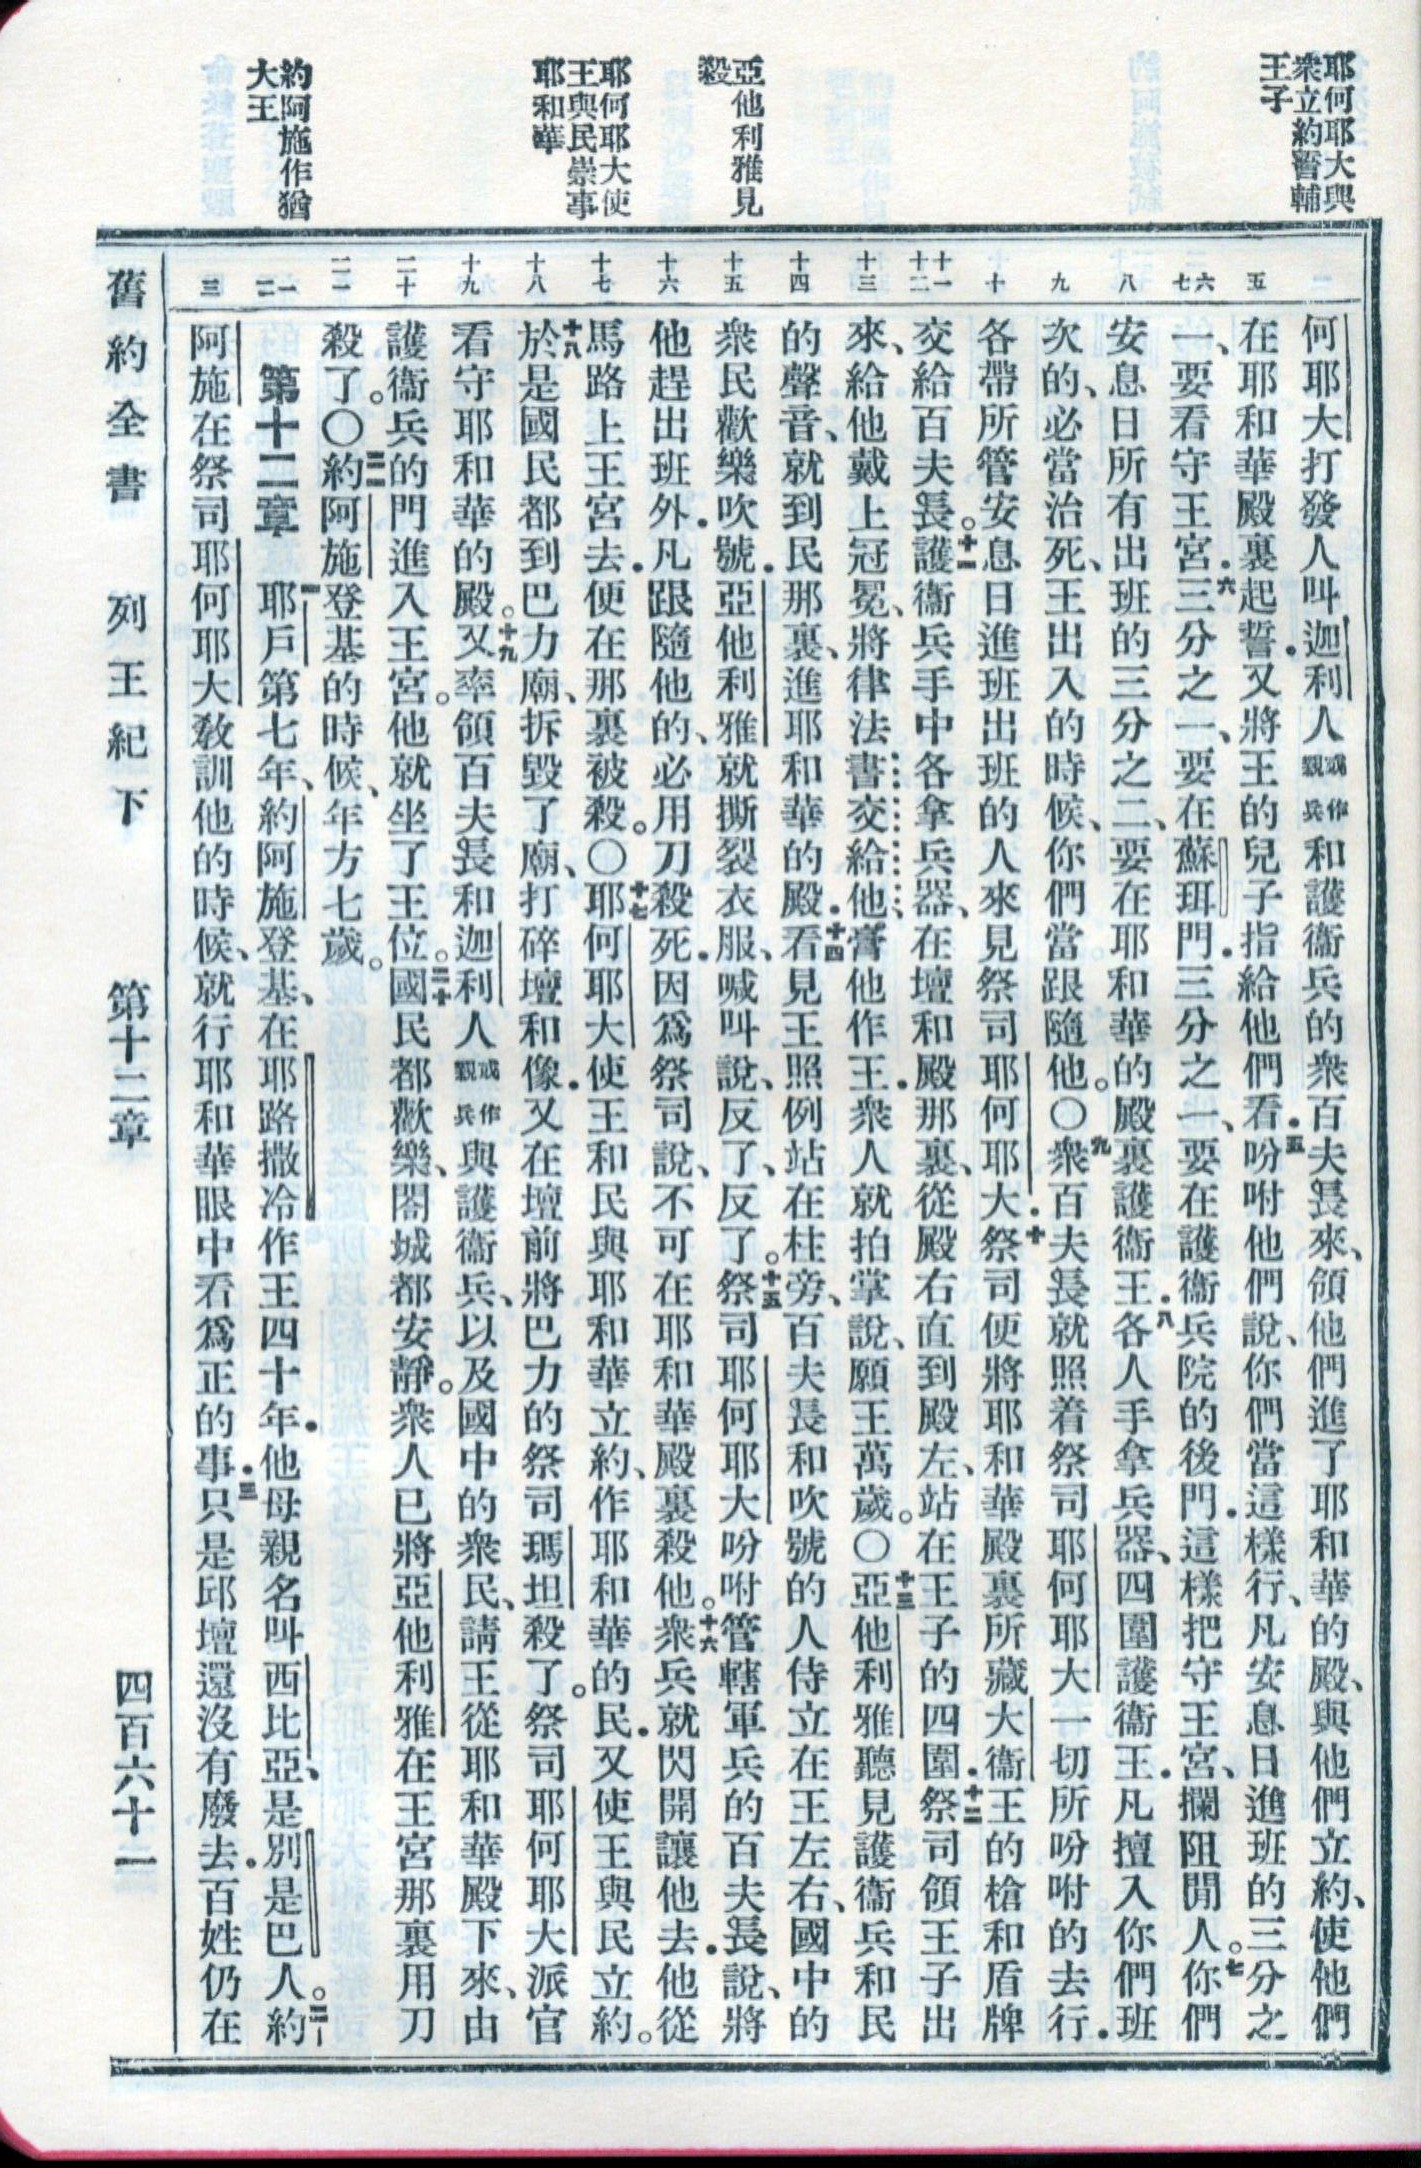 耶何耶大與
衆立約誓輔
王子
亞他利雅見
殺
耶何耶大使
王與民崇事
耶和華
約阿施作猶
大王
二
五
六
七
八
九
十
十一
十二
十三
十四
十五
十六
十七
十八
十九
二十
二一
一
二
三
何耶大打發人叫迦利人或作親兵和護衞兵的衆百夫長來、領他們進了耶和華的殿、與他們立約、使他們
在耶和華殿裏起誓又將王的兒子指給他們看五吩咐他們說、你們當這樣行、凡安息日進班的三分之
一、要看守王宮六三分之一、要在蘇珥門三分之一、要在護衞兵院的後門這樣把守王宮、攔阻閒人。七你們
安息日所有出班的三分之二、要在耶和華的殿裏護衞王八各人手拿兵器、四圍護衞王凡擅入你們班
次的、必當治死、王出入的時候、你們當跟隨他。〇九衆百夫長就照着祭司耶何耶大一切所吩咐的去行
各帶所管安息日進班出班的人來見祭司耶何耶大十祭司便將耶和華殿裏所藏大衞王的槍和盾牌
交給百夫長。十一護衞兵手中各拿兵器、在壇和殿那裏、從殿右直到殿左、站在王子的四圍十二祭司領王子出
來、給他戴上冠冕、將律法書交給他、膏他作王衆人就拍掌說、願王萬歲。〇十三亞他利雅聽見護衞兵和民
的聲音、就到民那裏、進耶和華的殿十四看見王照例站在柱旁、百夫長和吹號的人侍立在王左右、國中的
衆民歡樂吹號亞他利雅就撕裂衣服、喊叫說、反了、反了。十五祭司耶何耶大吩咐管轄軍兵的百夫長說、將
他趕出班外凡跟隨他的、必用刀殺死因爲祭司說、不可在耶和華殿裏殺他。十六衆兵就閃開讓他去他從
馬路上王宮去便在那裏被殺。〇十七耶何耶大使王和民與耶和華立約、作耶和華的民又使王與民立約。
十八於是國民都到巴力廟、拆毀了廟、打碎壇和像又在壇前將巴力的祭司瑪坦殺了。祭司耶何耶大派官
看守耶和華的殿。十九又率領百夫長和迦利人或作親兵與護衞兵、以及國中的衆民、請王從耶和華殿下來、由
護衞兵的門進入王宮。他就坐了王位。二十國民都歡樂、閤城都安靜。衆人已將亞他利雅在王宮那裏用刀
殺了。〇二一約阿施登基的時候、年方七歲。
第十二章　一耶戶第七年、約阿施登基、在耶路撒冷作王四十年他母親名叫西比亞、是別是巴人。二約
阿施在祭司耶何耶大教訓他的時候、就行耶和華眼中看爲正的事三只是邱壇還沒有廢去百姓仍在
舊約全書　列王紀下　第十二章　四百六十一